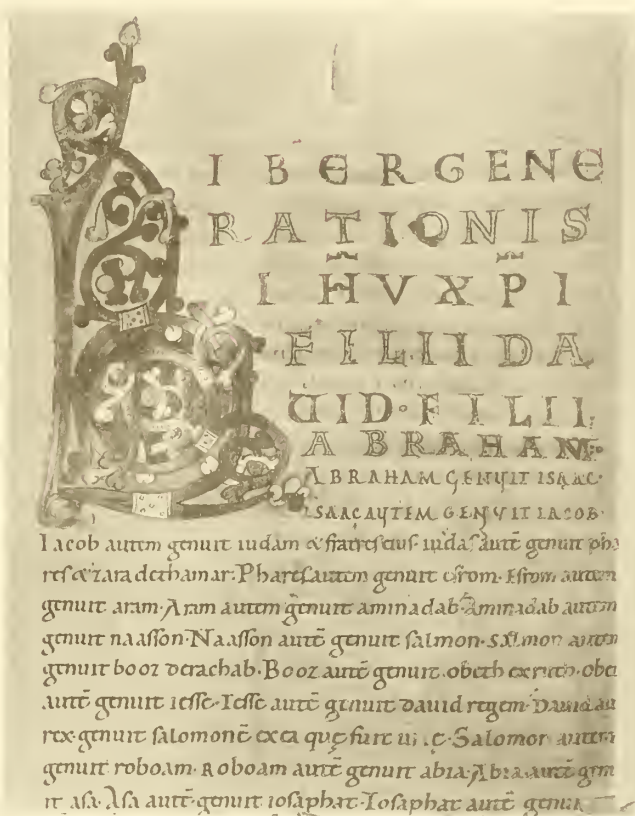 LIBER GENE
RATIONIS
IHV XPI
FILII DA
UID·FILII
ABRAHAM·
ABRAHAM GENUIT ISAAC·
ISAAC AUTEM GENUIT IACOB·
Iacob autem genuit iudam & fratres eius· iudas autē genuit pha
res & zara de thamar· Phares autem genuit esrom· Esrom autem
genuit aram· Aram autem genuit aminadab· Aminadab autem
genuit naasson· Naasson autē genuit salmon· Salmon autem
genuit booz derachab· Booz autē genuit· obeth ex ruth· obe
autē genuit iesse· Iesse autē genuit dauid regem· Dauid au
rex· genuit salomonē ex ea quę fuit Salomon autem
genuit roboam· Roboam autē genuit abia· Abia autē gen
it asa· Asa autē· genuit iosaphat· Iosaphat autē genu